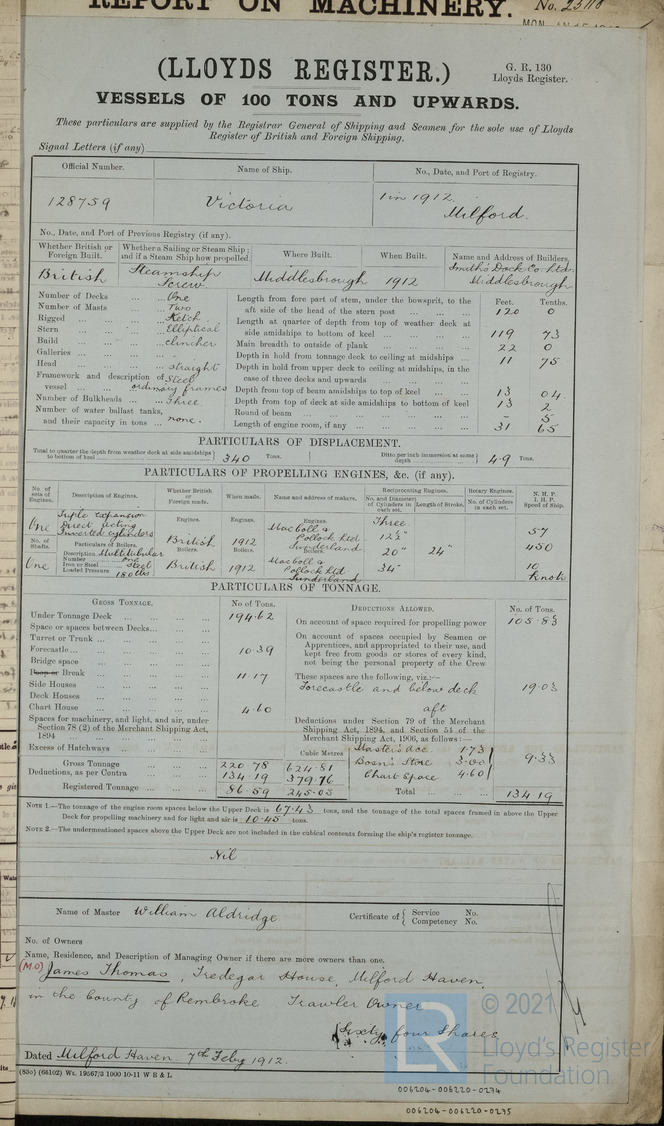 REPORT ON MACHINERY. No.
(LLOYDS REGISTER.)
G. R. 130
Lloyds Register.
VESSELS OF 100 TONS AND UPWARDS.
These particulars are supplied by the Registrar General of Shipping and Seamen for the sole use of Lloyds
Register of British and Foreign Shipping.
Signal Letters (if any)
Official Number. Name of Ship. No., Date, and Port of Registry.
128759 Victoria 1 in 1912.
Milford.
No., Date, and Port of Previous Registry (if any).
Whether British or Foreign Built. Whether a Sailing or Steam Ship; and if a Steam Ship how propelled. Where Built. When Built. Name and Address of Builders.
British Steamship Screw Middlesbrough 1912 Smith's Dock Co. Ltd. Middlesbrough
Number of Decks ... One
Number of Masts ... Two
Rigged ... Ketch
Stern ... Elliptical
Build ... clincher
Galleries ...
Head ... straight
Framework and description of vessel ... Steel ordinary frames
Number of Bulkheads ... Three
Number of water ballast tanks, and their capacity in tons ... none.
Feet. Tenths.
Length from fore part of stem, under the bowsprit, to the aft side of the head of the stern post ... 120 0
Length at quarter of depth from top of weather deck at side amidships to bottom of keel ... 119 73
Main breadth to outside of plank ... 22 0
Depth in hold from tonnage deck to ceiling at midships ... 11 75
Depth in hold from upper deck to ceiling at midships, in the case of three decks and upwards ...
Depth from top of beam amidships to top of keel ... 13 04
Depth from top of deck at side amidships to bottom of keel 13 2
Round of beam ... - 5
Length of engine room, if any ... 31 65
PARTICULARS OF DISPLACEMENT.
Total to quarter the depth from weather deck at side amidships to bottom of keel 340 Tons. Ditto per inch immersion at same depth 4.9 Tons.
PARTICULARS OF PROPELLING ENGINES, &c. (if any).
No. of sets of Engines. Description of Engines. Whether British or Foreign made. When made. Name and address of makers. Reciprocating Engines. Rotary Engines. N. H. P. I. H. P. Speed of Ship.
No. and Diameter of Cylinders in each set. Length of Stroke. No. of Cylinders in each set.
One Triple expansion Direct acting Inverted cylinders Engines. British Engines. 1912 Engines. Macboll & Pollock Ltd Sunderland Three 12½" 20" 34" 24" 57 450 10 Knots
No. of Shafts. Particulars of Boilers.
One Description Multitubular
Number one
Iron or Steel Steel
Loaded Pressure 180 lbs.
Boilers. British Boilers. 1912 Boilers. Macboll & Pollock Ltd Sunderland
PARTICULARS OF TONNAGE.
GROSS TONNAGE. No. of Tons. DEDUCTIONS ALLOWED. No. of Tons.
Under Tonnage Deck ... 194.62
Space or spaces between Decks...
Turret or Trunk ...
Forecastle... 10.39
Bridge space
Poop or Break ... 11.17
Side Houses
Deck Houses
Chart House ... 4.60
Spaces for machinery, and light, and air, under Section 78 (2) of the Merchant Shipping Act, 1894 ...
Excess of Hatchways ...
Cubic Metres
Gross Tonnage 220.78 624.81
Deductions, as per Contra 134.19 379.76
Registered Tonnage ... 86.59 245.05
On account of space required for propelling power 105.83
On account of spaces occupied by Seamen or Apprentices, and appropriated to their use, and kept free from goods or stores of every kind, not being the personal property of the Crew
These spaces are the following, viz.:—
Forecastle and below deck aft 19.03
Deductions under Section 79 of the Merchant Shipping Act, 1894, and Section 54 of the Merchant Shipping Act, 1906, as follows:—
Master's acc. 1.73
Bosn's Store 3.00
Chart Space 4.60
9.33
Total ... 134.19
NOTE 1.—The tonnage of the engine room spaces below the Upper Deck is 67.43 tons, and the tonnage of the total spaces framed in above the Upper
Deck for propelling machinery and for light and air is 10.45 tons.
NOTE 2.—The undermentioned spaces above the Upper Deck are not included in the cubical contents forming the ship's register tonnage.
Nil
Name of Master William Aldridge Certificate of { Service No. Competency No.
No. of Owners
Name, Residence, and Description of Managing Owner if there are more owners than one.
(M.O) James Thomas, Tredegar House, Milford Haven,
in the County of Pembroke Trawler Owner
Sixty four Shares
Dated Milford Haven 7th Feby 1912.
(85o) (66102) Wt. 19567/3 1000 10-11 W B & L
© 2021
LR
Lloyd's Register
Foundation
006204-006220-0274
006204-006220-0275